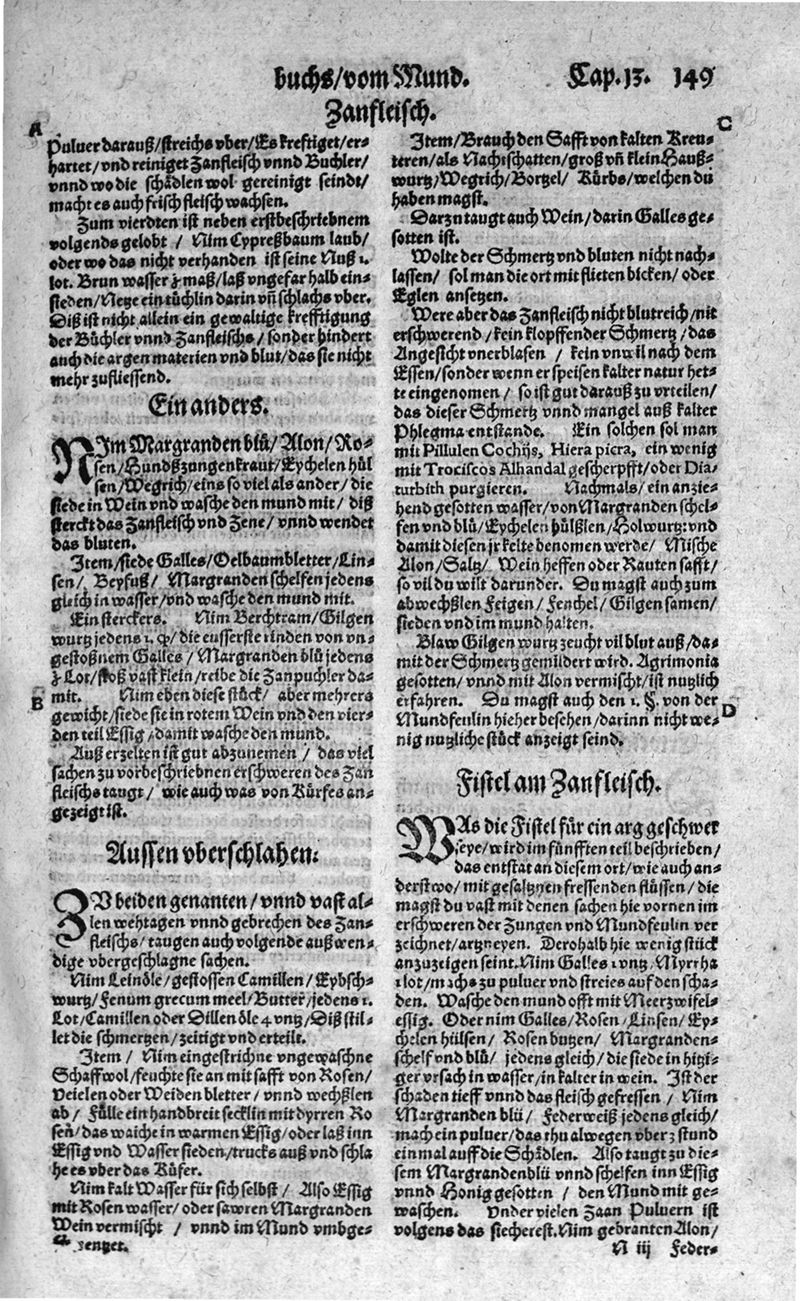 buchs/vom Mund. Cap. 13. 149
Zanfleisch.
A
Puluer darauß/streichs vber/Es kreftiget/er-
hartet/vnd reiniget Zanfleisch vnnd Buchler/
vnnd wo die schädlen wol gereinigt seindt/
macht es auch frisch fleisch wachsen.
Zum vierdten ist neben erstbeschriebnem
volgends gelobt / Nim Cypreßbaum laub/
oder wo das nicht verhanden ist seine Nuß 1.
lot. Brun wasser ʒ maß/laß vngefar halb ein-
sieden/Netze ein tüchlin darin vñ schlachs vber.
Diß ist nicht allein ein gewaltige krefftigung
der Büchler vnnd Zanfleischs/sonder hindert
auch die argen materien vnd blut/das sie nicht
mehr zufliessend.
Ein anders.
NIm Margranden blü/ Alon/ Ro-
sen/Hundßzungenkraut/Eychelen hül
sen/Wegrich/eins so viel als ander/die
siede in Wein vnd wasche den mund mit/ diß
sterckt das Zanfleisch vnd Zene/ vnnd wendet
das bluten.
Item/siede Galles/Oelbaumbletter/Lin-
sen/ Beyfuß/ Margranden schelfen jedens
gleich in wasser/vnd wasche den mund mit.
Ein sterckers. Nim Berchtram/Gilgen
wurtz jedens 1. q/die eusserste rinden von vn-
gestoßnem Galles/Margranden blü jedens
ʒ Lot/stoß vast klein/reibe die Zanpuchler da-
B
mit. Nim eben diese stück/ aber mehrers
gewicht/siede sie in rotem Wein vnd den vier-
den teil Essig/damit wasche den mund.
Auß erzelten ist gut abzunemen/ das viel
sachen zu vorbeschriebnen erschweren des Zan
fleischs taugt/ wie auch was von Kürfes an-
gezeigt ist.
Aussen vberschlahen.
ZV beiden genanten/vnnd vast al-
len wehtagen vnnd gebrechen des Zan-
fleischs/taugen auch volgende außwen-
dige vbergeschlagne sachen.
Nim Leinöle/gestossen Camillen/Eybsch-
wurtz/Fenum grecum meel/Butter/jedens 1.
Lot/Camillen oder Dillen öle 4 vntz/Diß stil-
let die schmertzen/zeitigt vnd erteilt.
Item/ Nim eingestrichne vngewaschne
Schaffwol/feuchte sie an mit safft von Rosen/
Veielen oder Weiden bletter/ vnnd wechßlen
ab/ Fülle ein handbreit secklin mit dyrren Ro
sen/das waiche in warmen Essig/oder laß inn
Essig vnd Wasser sieden/trucks auß vnd schla
he es vber das Küfer.
Nim kalt Wasser für sich selbst/ Also Essig
mit Rosen wasser/oder sawren Margranden
Wein vermischt / vnnd im Mund vmbge-
C
Item/Brauch den Safft von kalten Kreu-
teren/als Nachtschatten/groß vñ klein Hauß-
wurtz/Wegrich/Bortzel/ Kürbs/welchen du
haben magst.
Darzu taugt auch Wein/darin Galles ge-
sotten ist.
Wolte der Schmertz vnd bluten nicht nach-
lassen/ sol man die ort mit flieten bicken/ oder
Eglen ansetzen.
Were aber das Zanfleisch nicht blutreich/nit
erschwerend/kein klopffender Schmertz/das
Angesicht vnerblasen / kein vnwil nach dem
Essen/sonder wenn er speisen kalter natur het-
te eingenomen/ so ist gut darauß zu vrteilen/
das dieser Schmertz vnnd mangel auß kalter
Phlegma entstande. Ein solchen sol man
mit Pillulen Cochijs, Hiera picra, ein wenig
mit Trociscos Alhandal gescherpfft/oder Dia-
turbith purgieren. Nachmals/ein anzie-
hend gesotten wasser/von Margranden schel-
fen vnd blü/Eychelen hülßlen/Holwurtz: vnd
damit diesen jr kelte benomen werde/ Mische
Alon/Saltz/ Wein heffen oder Rauten safft/
so vil du wilt darunder. Du magst auch zum
abwechßlen Feigen/ Fenchel/ Gilgen samen/
sieden vnd im mund halten.
Blaw Gilgen wurtz zeucht vil blut auß/da-
mit der Schmertz gemildert wird. Agrimonia
gesotten/ vnnd mit Alon vermischt/ist nutzlich
erfahren. Du magst auch den 1. §. von der
D
Mundfeulin hieher besehen/darinn nicht we-
nig nutzliche stück anzeigt seind.
Fistel am Zanfleisch.
WAs die Fistel für ein arg geschwer
seye/wird im fünfften teil beschrieben/
das entstat an diesem ort/wie auch an-
derstwo/mit gesaltznen fressenden flüssen/ die
magst du vast mit denen sachen hie vornen im
erschweren der Zungen vnd Mundfeulin ver
zeichnet/artzneyen. Derohalb hie wenig stück
anzuzeigen seint. Nim Galles 1 vntz, Myrrha
1 lot/machs zu puluer vnd streies auf den scha-
den. Wasche den mund offt mit Meerzwifel-
essig. Oder nim Galles/Rosen/Linsen/ Ey-
chelen hülsen/ Rosen butzen/ Margranden-
schelf vnd blü/ jedens gleich/die siede in hitzi-
ger vrsach in wasser/in kalter in wein. Ist der
schaden tieff vnnd das fleisch gefressen/ Nim
Margranden blü/ Federweiß jedens gleich/
mach ein puluer/das thu alwegen vber 2 stund
einmal auff die Schädlen. Also taugt zu die-
sem Margrandenblü vnnd schelfen inn Essig
vnnd Honig gesotten / den Mund mit ge-
waschen. Vnder vielen Zaan Puluern ist
volgens das siecherest. Nim gebranten Alon/
N iij Feder-